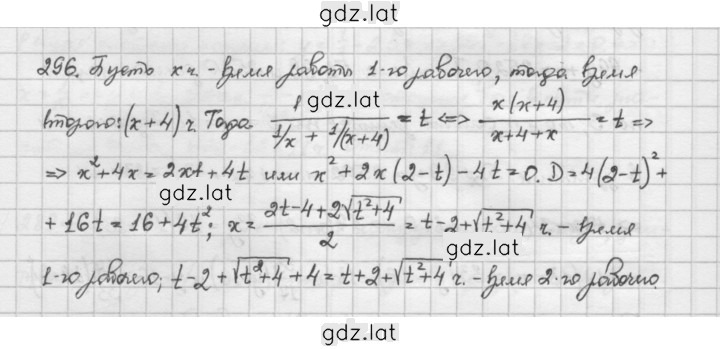 gdz.lat
296. Пусть x ч. - время работы 1-го рабочего, тогда время
второго: (x+4) ч. Тогда 1/(1/x + 1/(x+4)) = t <=> x(x+4)/(x+4+x) = t =>
gdz.lat
=> x²+4x = 2xt+4t или x²+2x(2-t)-4t=0. D=4(2-t)²+
gdz.lat
+16t = 16+4t²; x = (2t-4+2√(t²+4))/2 = t-2+√(t²+4) ч. - время
gdz.lat
1-го рабочего; t-2+√(t²+4)+4 = t+2+√(t²+4) ч. - время 2-го рабочего.
gdz.lat